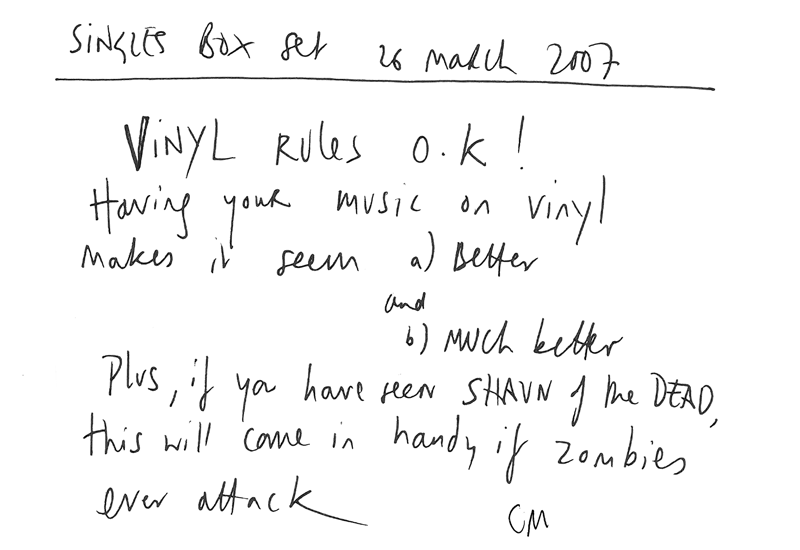 SiNGLES BOX Set 26 MARCH 2007
ViNYL RULES O.K!
Having your music on vinyl
makes it seem a) Better
and
b) MUCH better
Plus, if you have seen SHAUN of the DEAD,
this will come in handy if zombies
ever attack
CM